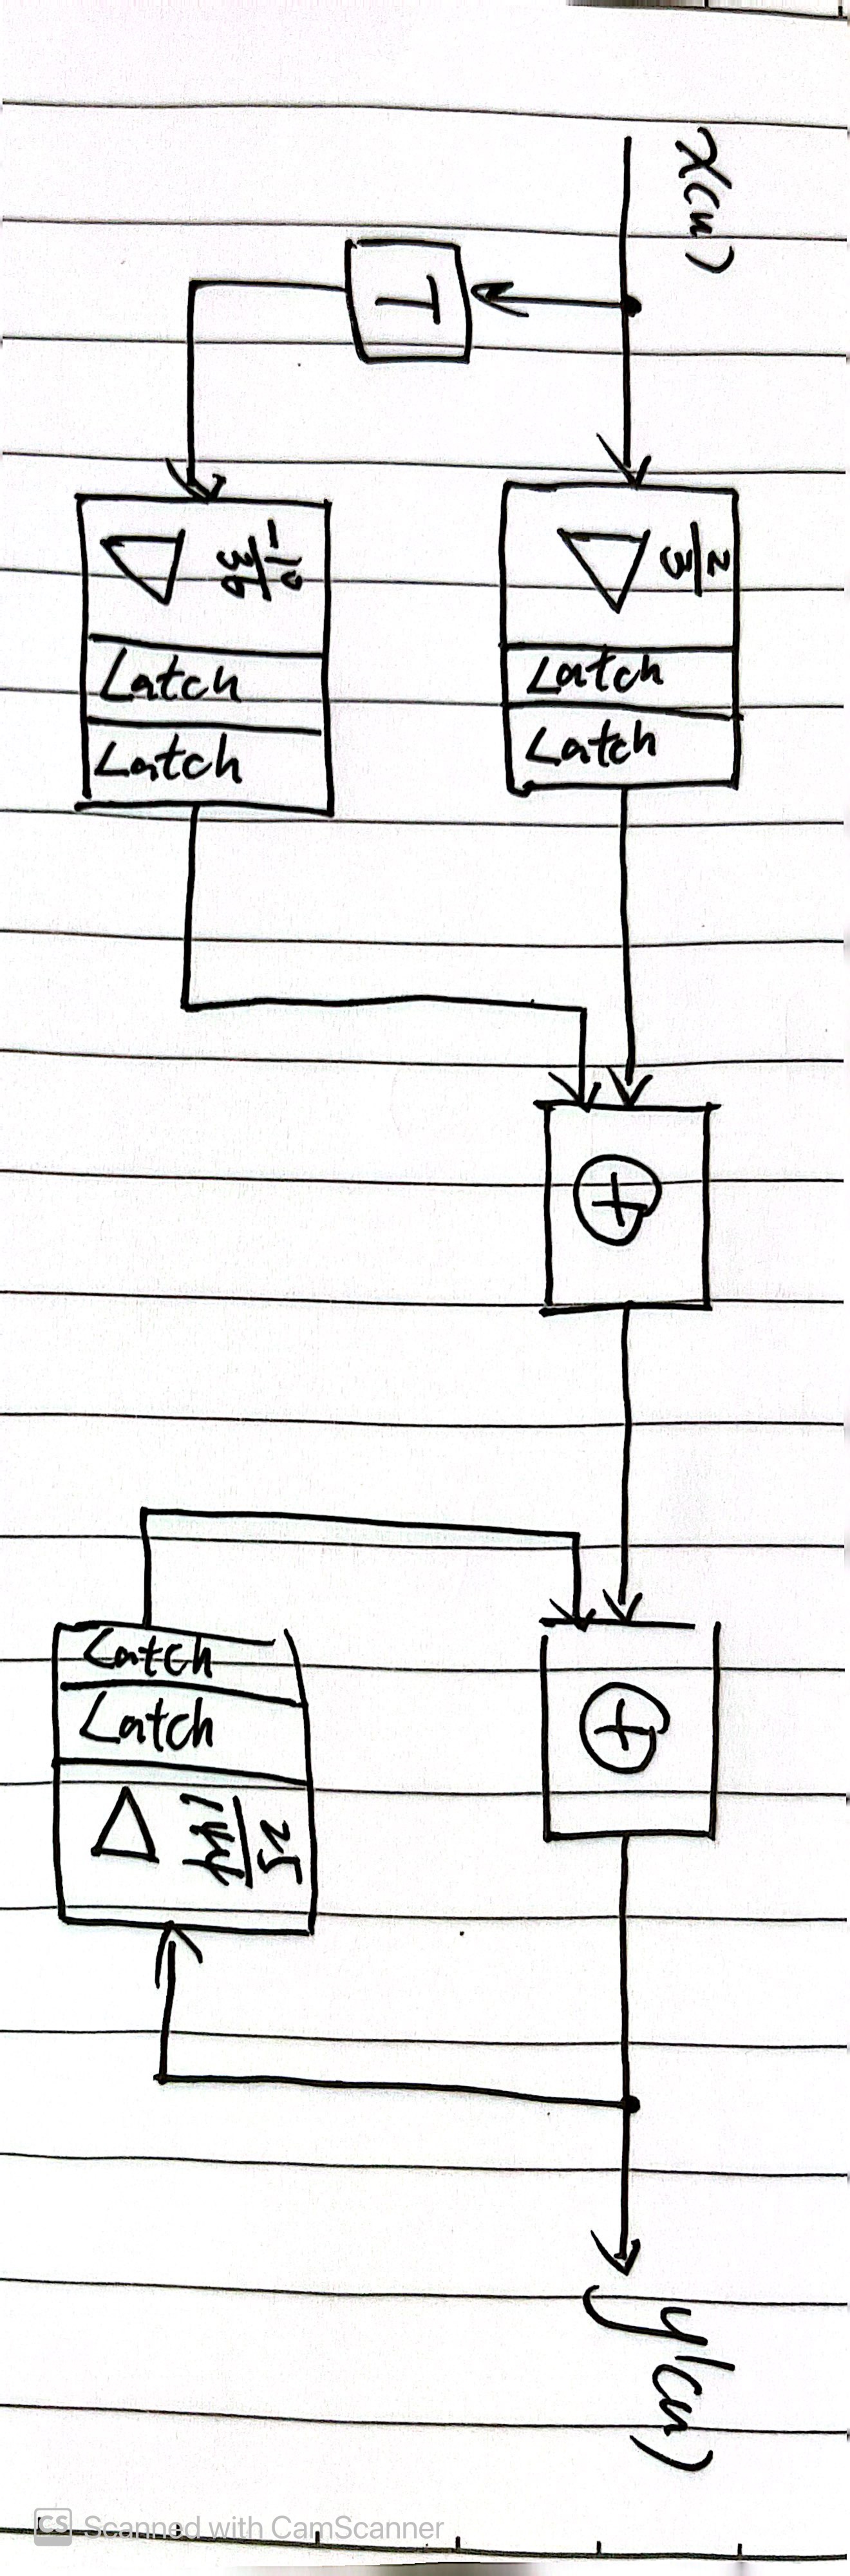 x(n)
2/3
Latch
Latch
+
+
y'(n)
T
-10/36
Latch
Latch
Latch
Latch
25/144
CS Scanned with CamScanner